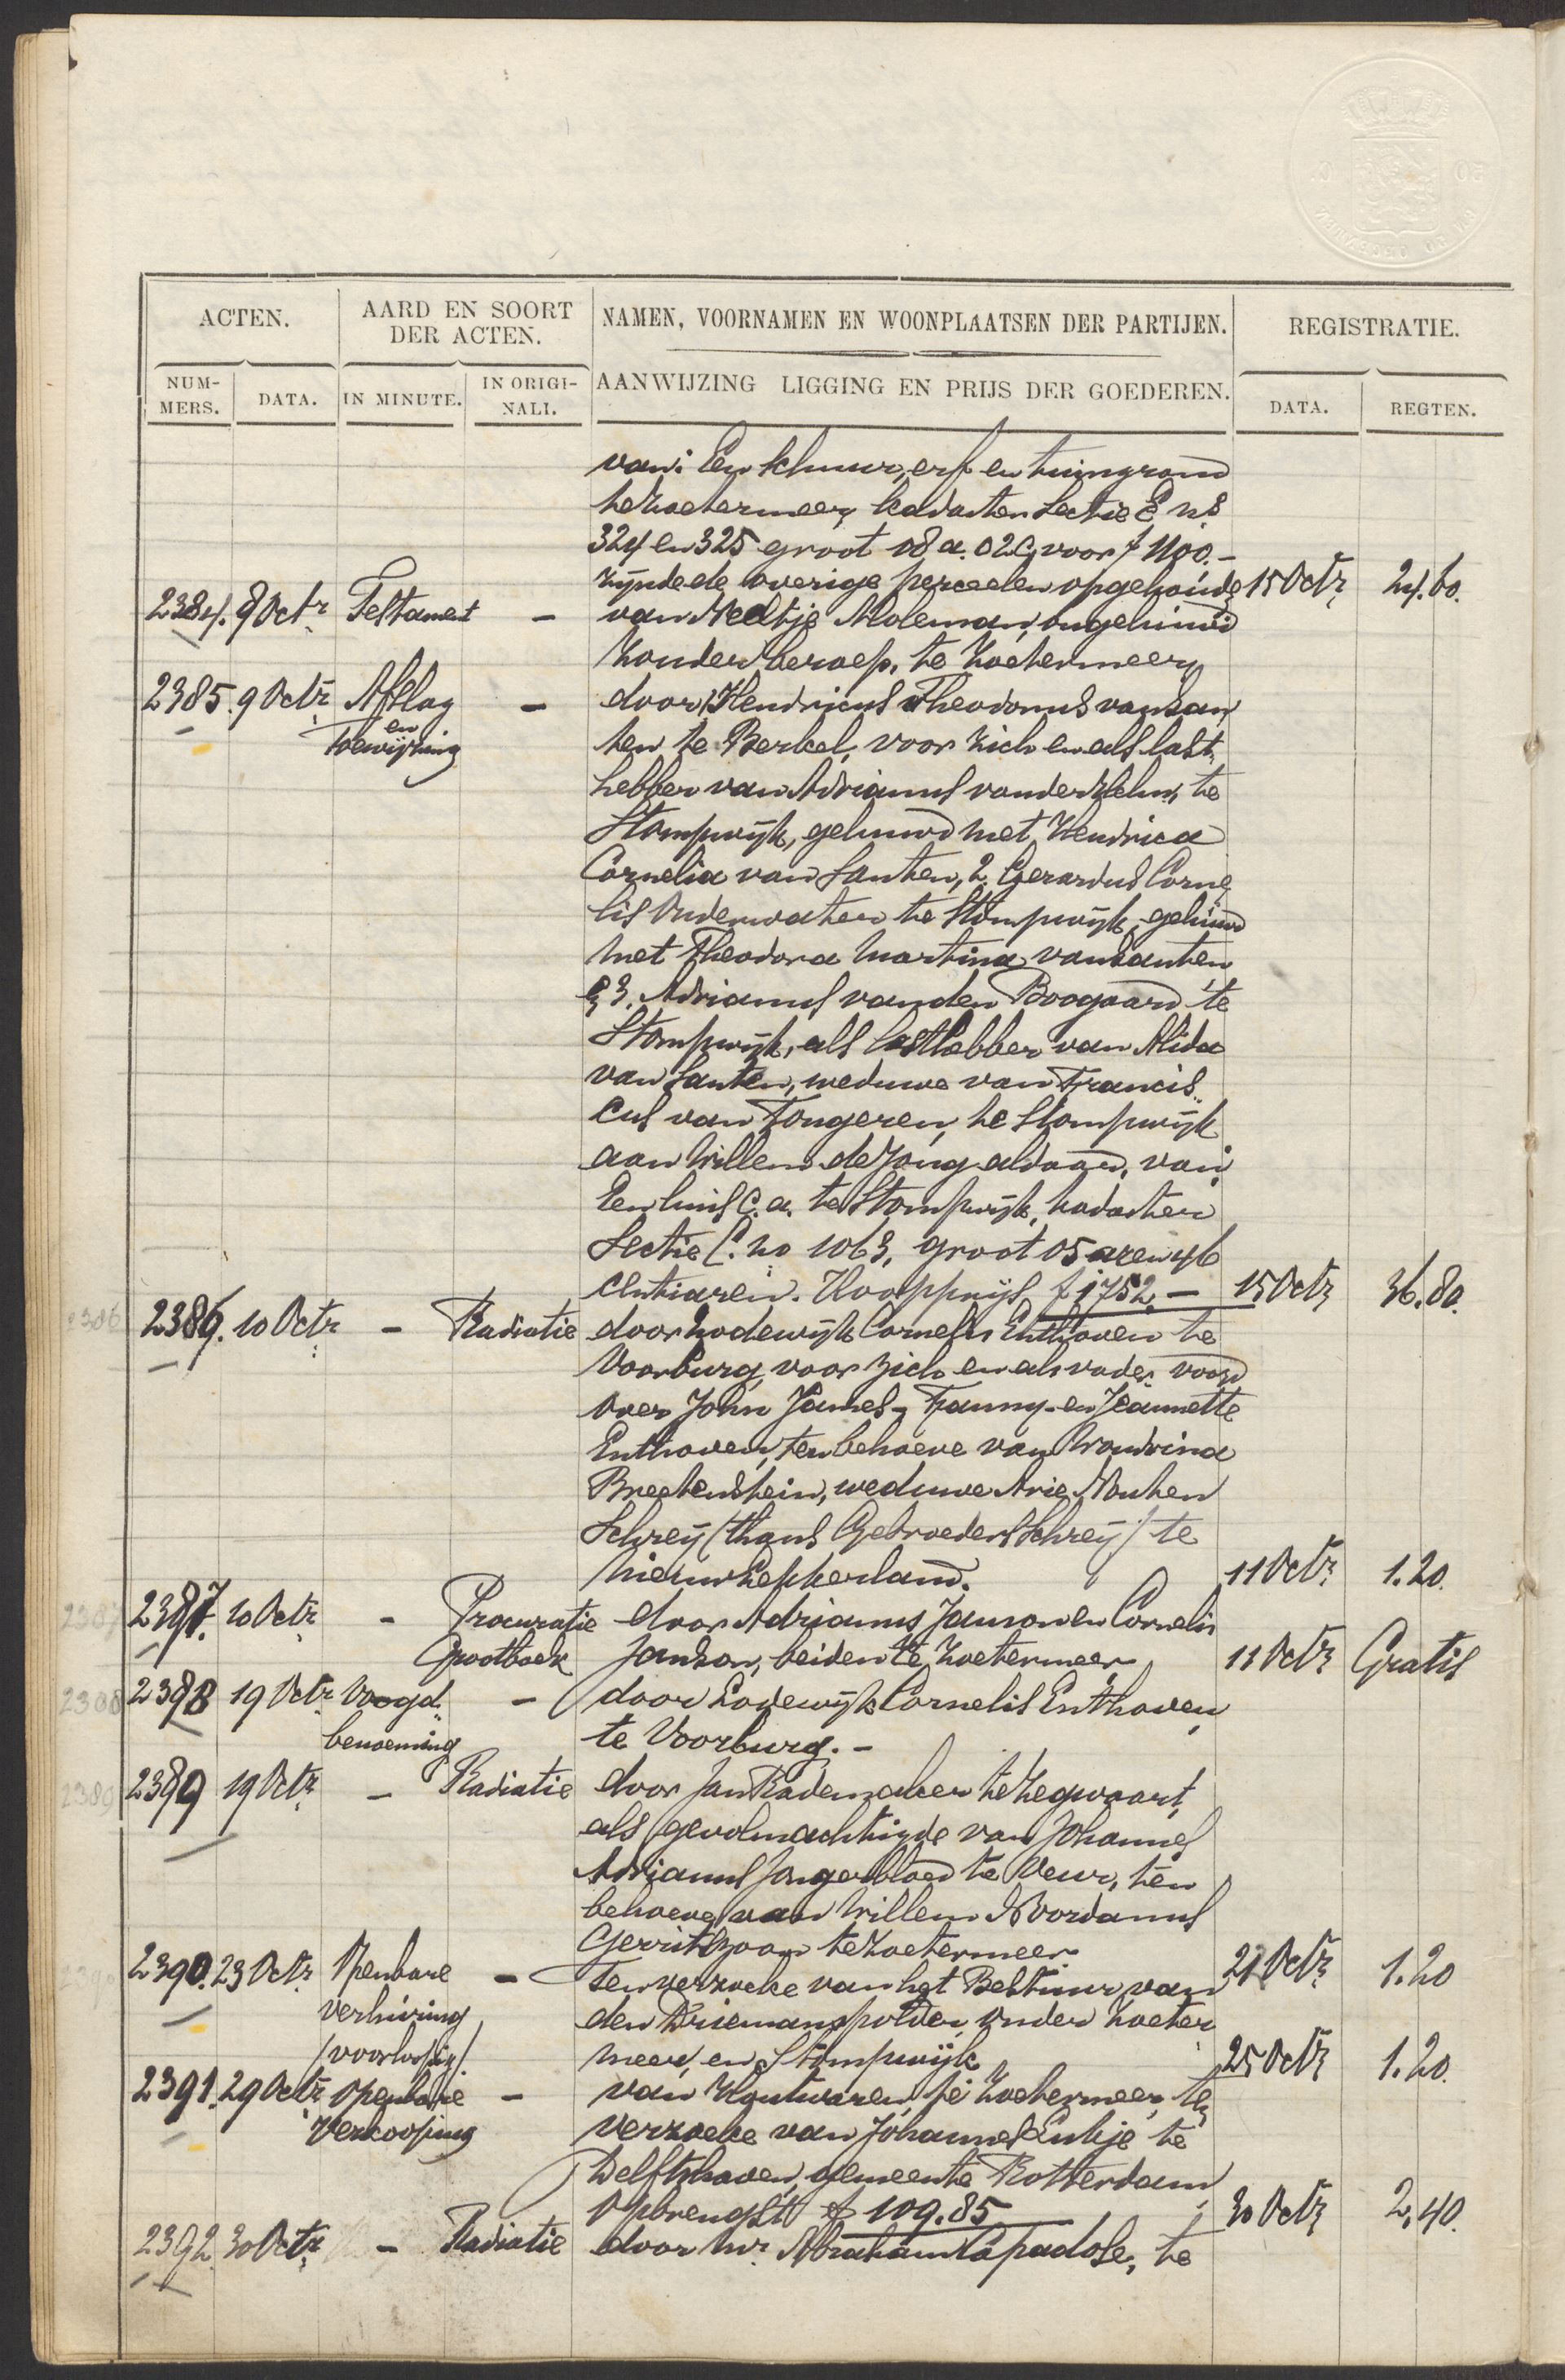 ACTEN.
AARD EN SOORT
DER ACTEN.
NAMEN, VOORNAMEN EN WOONPLAATSEN DER PARTIJEN.
REGISTRATIE.
NUM-
MERS.
DATA.
IN MINUTE.
IN ORIGI-
NALI.
AANWIJZING LIGGING EN PRIJS DER GOEDEREN.
DATA.
REGTEN.
van: Een schuur, erf en tuingrond
te Zoetermeer, kadaster Sectie E nos
324 en 325 groot 08 a. 02 c, voor f 1100.-
zijnde de overige perceelen opgehouden 15 Octr 24.60.
2384. 9 Octr Testament - van Neeltje Moleman, ongehuwd
zonder beroep, te Zoetermeer
2385. 9 Octr Afslag - door 1. Hendricus Theodorus van San
en
Toewijzing
ten te Berkel, voor zich en als last
hebber van Adrianus van der Helm, te
Stompwijk, gehuwd met Hendrica
Cornelia van Santen, 2. Gerardus Corne
lis Onderwater te Stompwijk, gehuwd
met Theodora Martina van Santen
en 3. Adrianus van den Boogaard te
Stompwijk, als lasthebber van Alida
van Santen, weduwe van Francis
cus van Tongeren, te Stompwijk
aan Willem de Jong aldaar, van:
Een huis c.a. te Stompwijk, kadaster
Sectie C. no 1063, groot 05 aren 46
centiaren. Koopprijs f 1752.- 15 Octr 36.80.
2386 2386. 10 Octr - Radiatie door Lodewijk Cornelis Enthoven te
Voorburg, voor zich en als vader voogd
over John James - Fanny - en Jeannette
Enthoven, ten behoeve van
Breekenstein, weduwe Arie Nouhen
Schreij (thans Gebroeders Schreij) te
Nieuwlekkerland. 11 Octr 1.20.
2387 2387. 10 Octr - Procuratie door Adrianus Janson en Cornelis
Grootboek Janson, beiden te Zoetermeer 11 Octr Gratis
2388 2388 19 Octr Voogd - door Lodewijk Cornelis Enthoven
benoeming te Voorburg. -
2389 2389 19 Octr - Radiatie door Jan Rademaker te Zegwaart,
als gevolmachtigde van Johannes
Adrianus Jongerbloed te Veur, ten
behoeve van Willem Noordanus
Gerritszoon te Zoetermeer 21 Octr 1.20
2390. 23 Octr Openbare - Ten verzoeke van het Bestuur van
verhuring den Driemanspolder, onder Zoeter
(voorloopig) meer en Stompwijk 25 Octr 1.20.
2391. 29 Octr Openbare - van Houtwaren, te Zoetermeer, ten
Verkooping verzoeke van Johannes te
Delfshaven, gemeente Rotterdam
Opbrengst f 109.85 30 Octr 2,40.
2392 30 Octr - Radiatie door Mr. Abraham Capadose, te